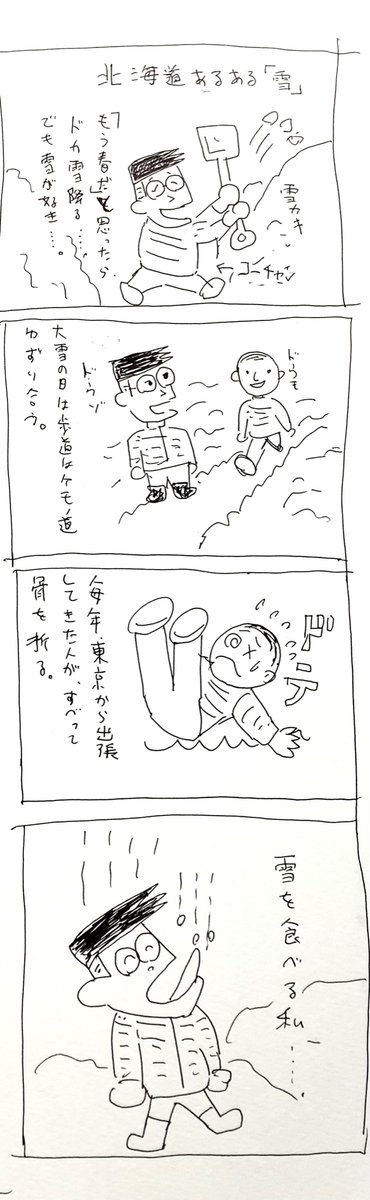 北海道あるある「雪」
雪カキ
「もう春だ」と思ったら
ドカ雪降る……。
でも雪が好き……。
ドウモ
ドウゾ
大雪の日は歩道はケモノ道
ゆずり合う。
毎年東京から出張
してきた人が、すべって
骨を折る。
雪を食べる私……。